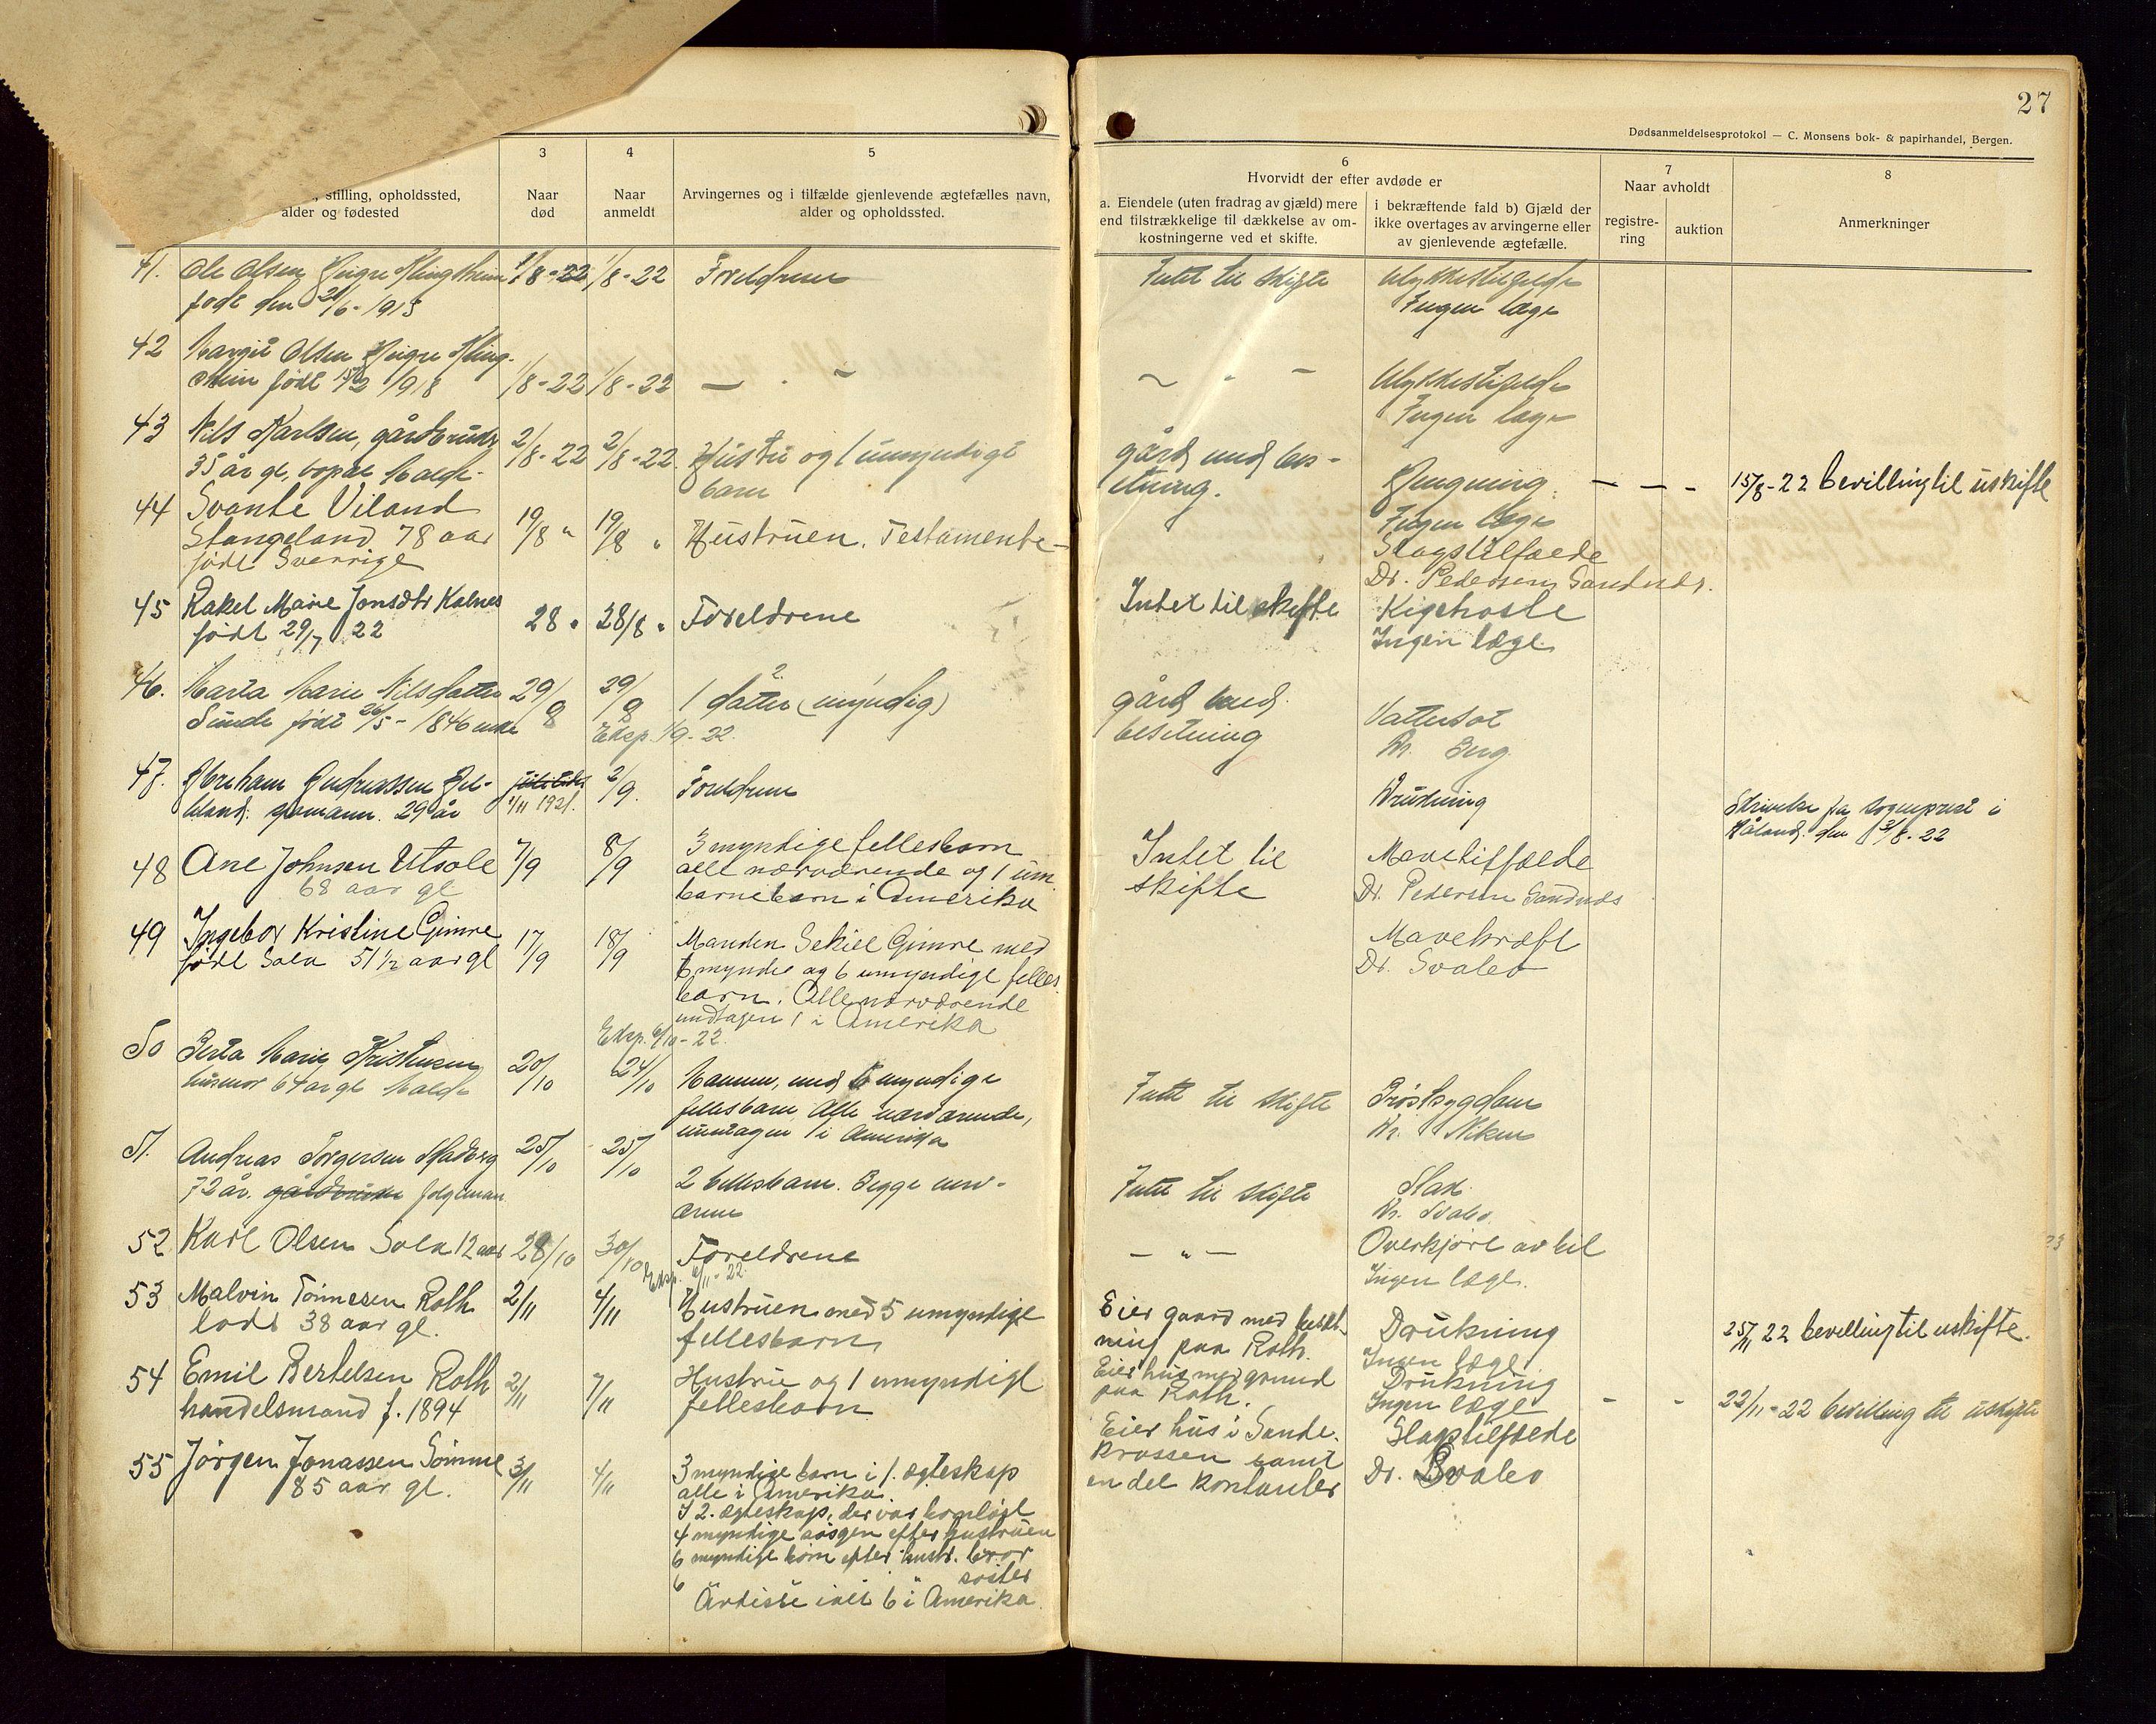 27
Dødsanmeldelsesprotokol — C. Monsens bok- & papirhandel, Bergen.
stilling, opholdssted,
alder og fødested
3
Naar
død
4
Naar
anmeldt
5
Arvingernes og i tilfælde gjenlevende ægtefælles navn,
alder og opholdssted.
6
Hvorvidt der efter avdøde er
a. Eiendele (uten fradrag av gjæld) mere
end tilstrækkelige til dækkelse av om-
kostningerne ved et skifte.
i bekræftende fald b) Gjæld der
ikke overtages av arvingerne eller
av gjenlevende ægtefælle.
7
Naar avholdt
registre-
ring
auktion
8
Anmerkninger
41. Ole Olsen 1/8-22 1/8-22 Foreldrene Intet til skifte Ulykkestilfelde
født den 21/6-1915 Ingen læge
42 Margit Olsen
født 1918 1/8-22 1/8-22 — " — Ulykkestilfelde
Ingen læge
43 Nils Karlsen, gårdbruker 2/8-22 2/8-22. Hustru og 1 umyndigt gård med bes-
35 år gl, bopæl Malde barn etning. Hengning. — — - 15/8-22 bevilling til uskifte
Ingen læge
44 Svante Viland
Stangeland 78 aar 19/8 " 19/8 " Hustruen. Testamente Slagstilfælde
født Sverrige Dr. Pedersen Sandnæs.
45 Rakel Marie Jonsdtr Kolnes 28 " 28/8 " Foreldrene Intet til skifte Kighoste
født 29/7 22 Ingen læge
46. Marta Marie Nilsdatter 29/8 29/8 1 datter (myndig) gård med
Sunde født 26/5-1846 enke Eksp. 1/9-22 besetning Vattersot
Dr. Berg
47. Abraham Gudmassen
29 år 1/11 1921. 2/9. Foreldrene Drukning Skrivelse fra sogneprest i
Håland. den 31/8-22
48 Ane Johnsen Utsole 7/9 8/9 3 myndige fellesbarn Intet til Mavetilfælde
68 aar gl alle nærværende og 1 um. skifte Dr. Pedersen Sandnæs
barnebarn i Amerika
49 Ingebor Kristine Gimre 17/9 18/9 Manden Sekiel Gimre med Mavekræft
født Sola 51 1/2 aar gl 6 myndie og 6 umyndige felles Dr. Svabo
barn. Alle nærværende
undtagen 1 i Amerika
Eksp. 6/10-22
50 Berta Marie Kristensen 20/10 24/10 Mannen, med 6 myndige Intet til skifte Brøstsygdom
husmor 64 ar gl Malde fellesbarn Alle nærværende, Dr. Niken
unntagen 1 i Amerika
51. Andreas Torgersen Skadberg 25/10 25/10 2 fellesbarn. Begge nærv- Intet til skifte Slag.
72 år. gårdbruker følgemann ærene Dr. Svabo.
52 Karl Olsen Sola 12 aar 28/10 30/10 Foreldrene — " — Overkjørt av bil
Eksp. 6/11-22 Ingen læge.
53 Malvin Tønnesen Roth 2/11 4/11 Hustruen med 5 umyndige Eier gaard med beset- Drukning 25/11 22 bevilling til uskifte.
lods 38 aar gl. fellesbarn ning paa Roth. Ingen læge
54 Emil Bertelsen Roth 2/11 7/11 Hustrue og 1 umyndigt Eier hus med grund Drukning - - 22/11-22 bevilling til uskifte
handelsmand f. 1894 fellesbarn paa Roth. Ingen læge
55 Jørgen Jonassen Sømme 3/11 4/11 3 myndige barn i 1. ægteskap Eier hus i Sande- Slagtilfælde
85 aar gl. alle i Amerika. krossen samt Dr. Svabo
en del kontanter
I 2. ægteskap, der var barnløst
4 myndige søsgen efter hustruen
6 myndige børn efter hustr. bror
6 " søster
Av disse ialt 6 i Amerika.